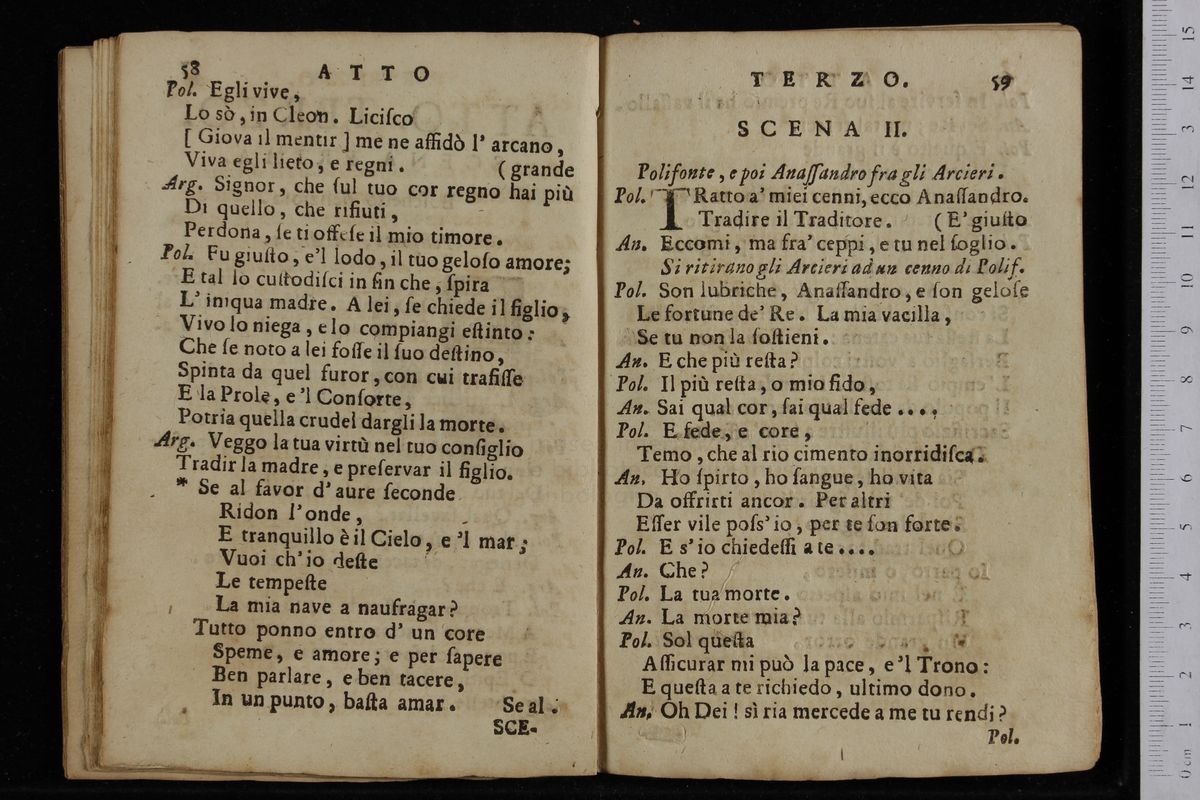 58 ATTO
Pol. Egli vive,
Lo sò, in Cleon. Liciſco
[ Giova il mentir ] me ne affidò l' arcano,
Viva egli lieto, e regni. (grande
Arg. Signor, che ſul tuo cor regno hai più
Di quello, che rifiuti,
Perdona, ſe ti offeſe il mio timore.
Pol. Fu giuſto, e'l lodo, il tuo geloſo amore;
E tal lo cuſtodiſci in fin che, ſpira
L' iniqua madre. A lei, ſe chiede il figlio,
Vivo lo niega, e lo compiangi eſtinto:
Che ſe noto a lei foſſe il ſuo deſtino,
Spinta da quel furor, con cui trafiſſe
E la Prole, e'l Conſorte,
Potria quella crudel dargli la morte.
Arg. Veggo la tua virtù nel tuo conſiglio
Tradir la madre, e preſervar il figlio.
* Se al favor d' aure ſeconde
Ridon l' onde,
E tranquillo è il Cielo, e 'l mar;
Vuoi ch' io deſte
Le tempeſte
La mia nave a naufragar?
Tutto ponno entro d' un core
Speme, e amore; e per ſapere
Ben parlare, e ben tacere,
In un punto, baſta amar. Se al.
SCE-
TERZO. 59
SCENA II.
Polifonte, e poi Anaſſandro fra gli Arcieri.
Pol. TRatto a' miei cenni, ecco Anaſſandro.
Tradire il Traditore. (E' giuſto
An. Eccomi, ma fra' ceppi, e tu nel ſoglio.
Si ritirano gli Arcieri ad un cenno di Polif.
Pol. Son lubriche, Anaſſandro, e ſon geloſe
Le fortune de' Re. La mia vacilla,
Se tu non la ſoſtieni.
An. E che più reſta?
Pol. Il più reſta, o mio fido,
An. Sai qual cor, ſai qual fede ....
Pol. E fede, e core,
Temo, che al rio cimento inorridiſca.
An. Ho ſpirto, ho ſangue, ho vita
Da offrirti ancor. Per altri
Eſſer vile poſs' io, per te ſon forte.
Pol. E s' io chiedeſſi a te ....
An. Che?
Pol. La tua morte.
An. La morte mia?
Pol. Sol queſta
Aſſicurar mi può la pace, e'l Trono:
E queſta a te richiedo, ultimo dono.
An. Oh Dei! sì ria mercede a me tu rendi?
Pol.
0 cm 1 2 3 4 5 6 7 8 9 10 11 12 13 14 15